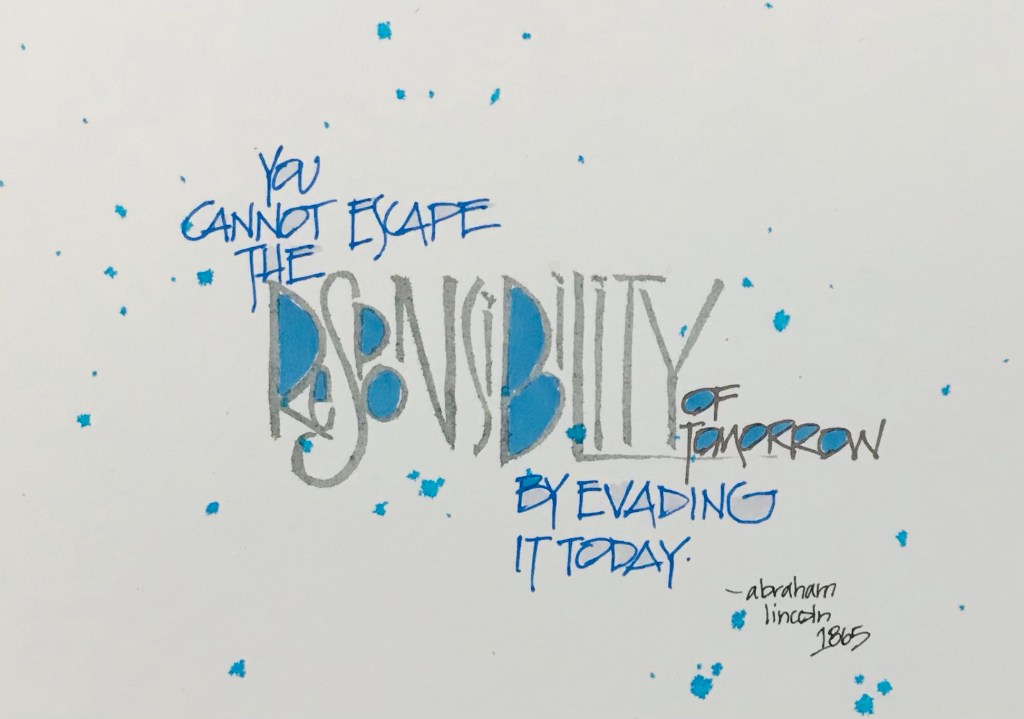 YOU
CANNOT ESCAPE
THE
ReSPONSiBILITY
OF
TOMORROW
BY EVADING
IT TODAY.
- abraham
lincoln
1865